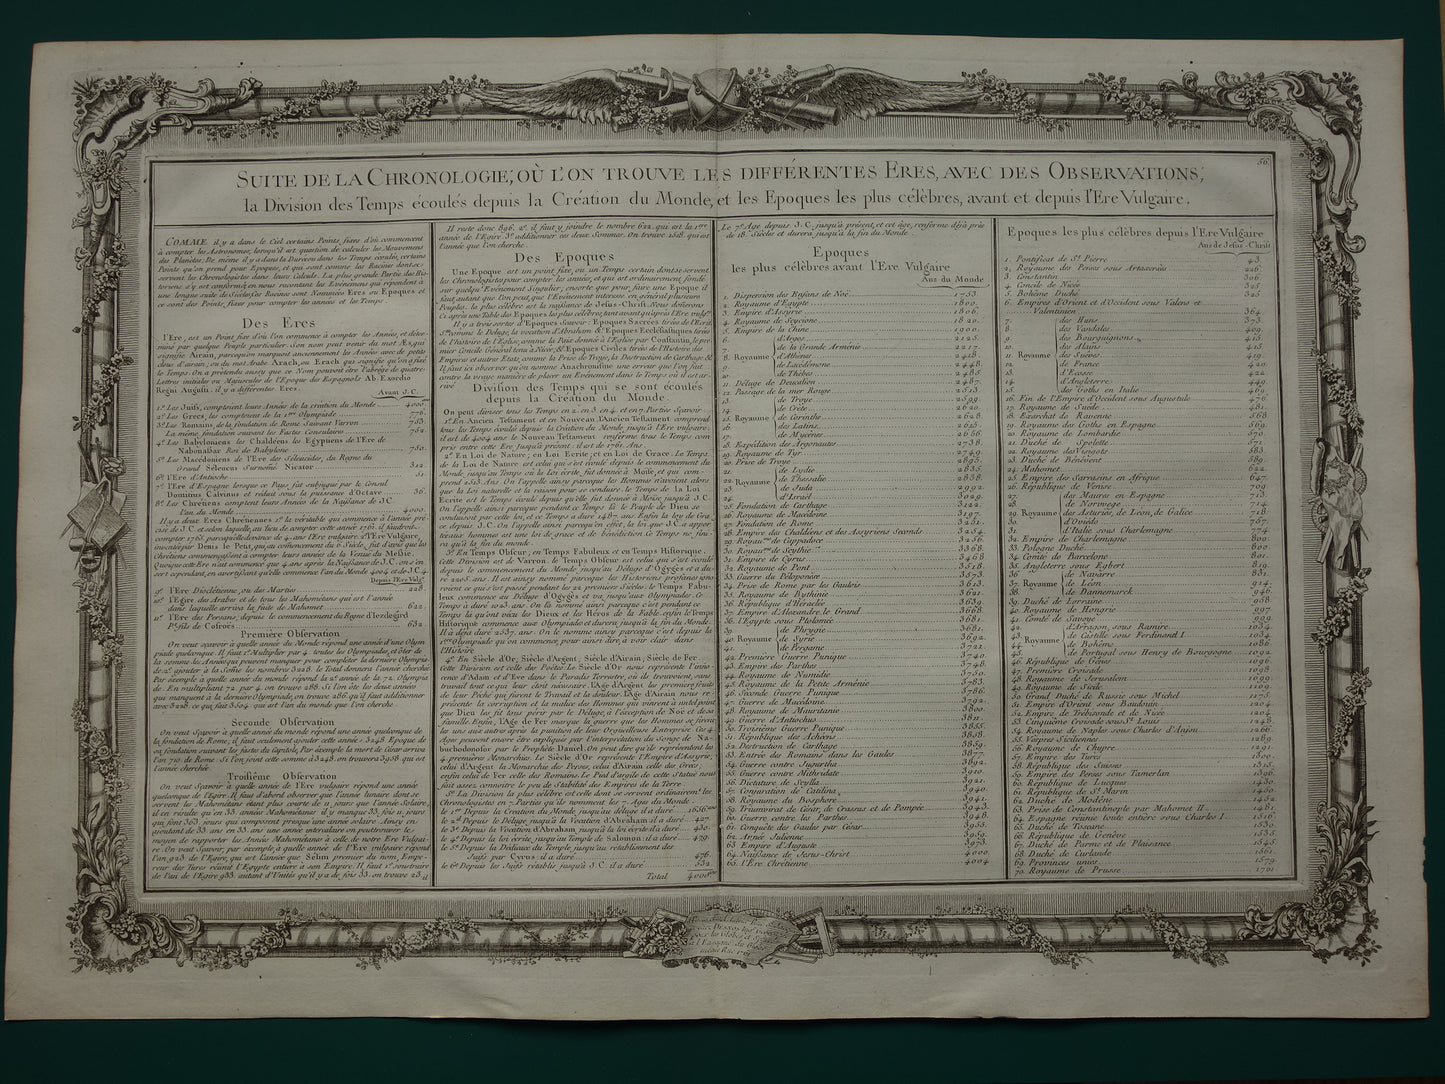 56.
SUITE DE LA CHRONOLOGIE; OÙ L'ON TROUVE LES DIFFÉRENTES ERES, AVEC DES OBSERVATIONS;
la Division des Temps écoulés depuis la Création du Monde, et les Epoques les plus célèbres, avant et depuis l'Ere Vulgaire.
COMME il y a dans le Ciel certains Points fixes d'où commencent
à compter les Astronomes, lorsqu'il est question de calculer les Mouvemens
des Planètes. De même il y a dans la Durée ou dans les Temps écoulés, certains
Points qu'on prend pour Epoques, et qui sont comme les Racines dont se
servent les Chronologistes dans leurs Calculs. La plus grande Partie des His-
toriens s'y est conformée en nous racontant les Evénemens qui répondent à
une longue suite de Siècles, ces Racines sont Nommées Eres ou Epoques et
ce sont des Points fixes pour compter les années et les Temps.
Des Eres
l'Ere, est un Point fixe d'où l'on commence à compter les Années, et déter-
miné par quelque Peuple particulier. Son nom peut venir du mot Æs, qui
signifie Airain, parcequ'on marquoit anciennement les Années avec de petits
clous d'airain; ou du mot Arabe Arach, ou Erach qui signifie qu'on a fixé
le Temps. On a prétendu aussi que ce Nom pouvoit être l'abrégé de quatre
Lettres initiales ou Majuscules de l'Epoque des Espagnols Ab Exordio
Regni Augusti. il y a différentes Eres.
Avant J. C.
1º. Les Juifs, comptoient leurs Années de la création du Monde 4000
2º. Les Grecs, les comptoient de la 1ere Olympiade 776.
3º. Les Romains, de la fondation de Rome Suivant Varron 753.
La même fondation suivant les Fastes Consulaires 752.
4º. Les Babyloniens les Chaldéens les Egyptiens de l'Ere de
Nabonassar Roi de Babylone 730.
5º. Les Macédoniens de l'Ere des Séleucides, du Regne du
Grand Séleucus Surnomé Nicator 312
6º. l'Ere d'Antioche 51
7º. l'Ere d'Espagne lorsque ce Pays fut subjugué par le Consul
Domitius Calvinus et réduit sous la puissance d'Octave 36.
8º. Les Chrétiens comptent leurs Années de la Naissance de J. C.
l'an du Monde 4000.
Il y a deux Eres Chrétiennes 1º la véritable qui commence à l'année pré-
cise de J. C. et selon laquelle, au lieu de compter cette année 1761 il faudroit
compter 1765. parcequ'elle devance de 4. ans l'Ere vulgaire. 2º l'Ere Vulgaire,
inventée par Denis le Petit, qui au commencement du 6e. Siècle, fut d'avis que les
Chrétiens commençassent à compter leurs années de la Venue du Messie.
Quoique cette Ere n'ait commencé que 4 ans après la Naissance de J. C. on s'en
sert cependant, en avertissant qu'elle commence l'an du Monde 4004 et de J. C. 4.
Depuis l'Ere Vulg.
9º. l'Ere Dioclétienne, ou des Martirs 228.
10º. l'Egire des Arabes et de tous les Mahométans qui est l'année
dans laquelle arriva la fuite de Mahomet 622.
11º. l'Ere des Persans, depuis le commencement du Regne d'Iezdegird
Pt. fils de Cosroès 632.
Première Observation
On veut sçavoir à quelle année du Monde répond une année d'une Olym
piade quelconque. Il faut 1º. Multiplier par 4. toutes les Olympiades, et ôter de
la somme les Années qui peuvent manquer pour compléter la derniere Olympia-
de. 2º. ajouter à la Some les nombres 3228. le Total donnera l'année cherchée
Par éxemple à quelle année du monde répond la 2e. année de la 72. Olympia
de. En multipliant 72. par 4. on trouve 288. Si l'on ôte les deux années
qui manquent à la dernière Olympiade, on trouve 286. qu'il faut additionner
avec 3228. ce qui fait 3504. qui est l'an du monde que l'on cherche.
Seconde Observation
On veut sçavoir à quelle année du monde répond une année quelconque de
la fondation de Rome; il faut seulement ajouter cette année à 3248. Epoque de
sa fondation suivant les fastes du Capitole; Par éxemple la mort de César arriva
l'an 710. de Rome. Si l'on joint cette somme à 3248. on trouvera 3958 qui est
l'année cherchée
Troisième Observation
On veut Sçavoir à quelle année de l'Ere vulgaire répond une année
quelconque de l'Egire. Il faut d'abord observer que l'année lunaire dont se
servent les Mahométans étant plus courte de 11. jours que l'année Solaire,
il en résulte qu'en 33. années Mahométanes il y manque 33. fois 11. jours
qui font 363. jours qui composent presque une année solaire. Ainsy en
ajoutant de 33. ans en 33. ans une année intercalaire on peut trouver le
moyen de rapporter les Années Mahométanes à celle de notre Ere Vulgai-
re. On veut Sçavoir, par exemple à quelle année de l'Ere vulgaire répond
l'an 923. de l'Egire, qui est l'année que Selim premier du nom, Empe-
reur des Turcs réunit l'Egypte entière à son Empire. Il faut 1º. soustraire
de l'an de l'Egire 933. autant d'Unités qu'il y a de fois 33. on trouve 23. il
Il reste donc 896. 2º. il faut y joindre le nombre 622. qui est la 1ere
année de l'Egire. 3º. additionner ces deux Sommes. On trouve 1518. qui est
l'année que l'on cherche.
Des Epoques
Une Epoque est un point fixe, ou un Temps certain dont se servent
les Chronologistes pour compter les années, et qui est ordinairement fondé
sur quelqu'Evénement Singulier, ensorte que pour faire une Epoque il
faut autant que l'on peut, que l'Evénement intéresse en général plusieurs
Peuples. la plus célèbre est la naissance de Jesus-Christ. Nous donnerons
Ci après une Table des Epoques les plus célèbres, tant avant qu'après l'Ere vulg.re
Il y a trois sortes d'Epoques Sçavoir: Epoques Sacrées tirées de l'Ecrit.
Ste. comme le Déluge, la vocation d'Abraham &c. Epoques Ecclésiastiques tirées
de l'histoire de l'Eglise; comme la Paix donnée à l'Eglise par Constantin, le pre
mier Concile Général tenu à Nicée, &c. Epoques Civiles tirées de l'Histoire des
Empires et autres Etats, comme la Prise de Troye, la Destruction de Carthage &c.
Il faut ici observer qu'on nomme Anachronisme une erreur que l'on fait
contre la vraye manière de placer un Evénement dans le Temps où il est ar-
rivé
Division des Temps qui se sont écoulés
depuis la Création du Monde.
On peut diviser tous les Temps en 2. en 3. en 4. et en 7. Parties Sçavoir.
1º. En Ancien Testament et en Nouveau, l'Ancien Testament comprend
tous les Temps écoulés depuis la Création du Monde, jusqu'à l'Ere vulgaire:
il est de 4004 ans le Nouveau Testament renferme tous le Temps com-
pris entre cette Ere jusqu'à présent: il est de 1761. ans.
2º. En Loi de Nature; en Loi Ecrite; et en Loi de Grace. Le Temps
de la Loi de Nature est celui qui s'est écoulé depuis le commencement du
Monde, jusqu'au Temps où la Loi écrite, fut donnée à Moïse, et qui com-
prend 2513 Ans. On l'appelle ainsy parceque les Hommes n'avoient alors
que la loi naturelle et la raison pour se conduire. le Temps de la Loi
Ecrite est le Temps écoulé depuis qu'elle fut donnée à Moïse jusqu'à J. C.
On l'appelle ainsy parceque pendant ce Temps là le Peuple de Dieu se
conduisoit par cette loi, et ce Temps a duré 1487. ans. Enfin la loy de Gra-
ce depuis J. C. On l'appelle ainsi parcequ'en effet, la loi que J. C. a appor
té aux hommes est une loi de grace et de bénédiction. Ce Temps ne fini-
ra qu'à la fin du Monde.
3º. En Temps Obscur, en Temps Fabuleux et en Temps Historique.
Cette Division est de Varron. le Temps Obscur est celui qui s'est écoulé
depuis le commencement du Monde jusqu'au Déluge d'Ogygès et a du
ré 2208 ans. Il est ainsi nommé parceque les Historiens profanes igno
roient ce qui s'est passé pendant les 22. premiers Siècles. le Temps Fabu-
leux commence au Déluge d'Ogygès et va jusqu'aux Olympiades. Ce
Temps a duré 1023 ans. On l'a nommé ainsi parceque c'est pendant ce
Temps là qu'ont vécu les Dieux et les Héros de la Fable. enfin le Temps
Historique commence aux Olympiades et durera jusqu'à la fin du Monde.
Il a déja duré 2537 ans. On le nomme ainsi parceque c'est depuis la
1ere. Olympiade qu'on commence, pour ainsi dire à voir clair dans
l'Histoire
4º. En Siècle d'Or, Siècle d'Argent, Siècle d'Airain, Siècle de Fer.
Cette Division est celle des Poëtes. Le Siècle d'Or nous représente l'inno-
cence d'Adam et d'Eve dans le Paradis Terrestre, où ils trouvoient, sans
travail tout ce qui leur étoit nécessaire. L'Age d'Argent les premiers fruits
de leur Péché qui furent le Travail et la douleur. L'Age d'Airain nous re-
présente la corruption et la malice des Hommes qui vinrent à un tel point
que Dieu les fit tous périr par le Déluge, à l'exception de Noé et de sa
famille. Enfin, l'Age de Fer marque la guerre que les Hommes se firent
les uns aux autres après la punition de leur Orgueilleuse Entreprise. Ces 4.
Ages peuvent encore être expliqués par l'interprétation du Songe de Na-
buchodonosor par le Prophète Daniel. On peut dire qu'ils représentent les
4. premières Monarchies. Le Siècle d'Or représente l'Empire d'Assyrie;
celui d'Argent la Monarchie des Perses, celui d'Airain celle des Grecs;
enfin celui de Fer celle des Romains. Le Pied d'argile de cette Statue nous
fait assez connoitre le peu de Stabilité des Empires de la Terre.
5º. La Division la plus célèbre est celle dont se servent ordinairemt. les
Chronologistes en 7. Parties qu'ils nomment les 7. Ages du Monde.
le 1er. Depuis la Création du Monde jusqu'au déluge il a duré 1656 ans
le 2d. Depuis le Déluge jusqu'à la Vocation d'Abraham il a duré 427.
le 3e. Depuis la Vocation d'Abraham jusqu'à la loi écrite il a duré 430.
le 4e. Depuis la loi écrite jusqu'au Temple de Salomon il a duré 479.
le 5e. Depuis la Dédicace du Temple jusqu'au rétablissement des
Juifs par Cyrus il a duré 476.
le 6e. Depuis les Juifs rétablis, jusqu'à J. C. il a duré 532
Total 4000 ans
Le 7e. Age depuis J. C. jusqu'à présent, et cet âge, renferme déjà près
de 18. Siècles et durera jusqu'à la fin du Monde.
Epoques
les plus célèbres avant l'Ere Vulgaire
Ans du Monde
1. Dispersion des Enfans de Noé 1753
2. Royaume d'Egypte 1800.
3. Empire d'Assyrie 1806.
4. Royaume de Scycione 1820.
5. Empire de la Chine 1900.
6. d'Argos 2125.
7. de la Grande Arménie 2217.
8. Royaume d'Athènes 2418.
9. de Lacédémone 2448.
10. de Thèbes 2485.
11. Déluge de Deucalion 2487.
12. Passage de la mer Rouge 2513.
13. de Troye 2599.
14. de Crète 2620.
15. Royaume de Corinthe 2628.
16. des Latins 2615.
17. de Mycènes 2666.
18. Expédition des Argonautes 2738.
19. Royaume de Tyr 2749.
20. Prise de Troye 2895.
21. de Lydie 2835.
22. de Thessalie 2858.
23. Royaume de Juda 2992.
24. d'Israel 3029.
25. Fondation de Carthage 3122.
26. Royaume de Macédoine 3197.
27. Fondation de Rome 3251.
28. Empire des Chaldéens et des Assyriens Seconds 3254.
29. Royau.me de Cappadoce 3256.
30. Royau.me de Scythie 3368.
31. Empire de Cyrus 3468.
32. Royaume de Pont 3518.
33. Guerre du Péloponèse 3573.
34. Prise de Rome par les Gaulois 3613.
35. Royaume de Bythinie 3621.
36. République d'Héraclée 3639.
37. Empire d'Alexandre le Grand 3668.
38. l'Egypte sous Ptolomée 3681.
39. de Phrygie 3681.
40. Royaume de Syrie 3692.
41. de Pergame 3721.
42. Première Guerre Punique 3740.
43. Empire des Parthes 3748.
44. Royaume de Numidie 3750.
45. Royaume de la Petite Arménie 3783.
46. Seconde Guerre Punique 3786.
47. Guerre de Macédoine 3792.
48. Royaume de Mauritanie 3808.
49. Guerre d'Antiochus 3811.
50. Troisième Guerre Punique 3855.
51. République des Achéens 3858.
52. Destruction de Carthage 3859.
53. Entrée des Romains dans les Gaules 3877.
54. Guerre contre Jugurtha 3892.
55. Guerre contre Mithridate 3910.
56. Dictature de Scylla 3921.
57. Conjuration de Catilina 3940.
58. Royaume du Bosphore 3941.
59. Triumvirat de César, de Crassus et de Pompée 3943.
60. Guerre contre les Parthes 3948.
61. Conquête des Gaules par César 3955.
62. Année Julienne 3959.
63. Empire d'Auguste 3973.
64. Naissance de Jesus-Christ 4000.
65. l'Ere Chrétienne 4004
Epoques les plus célèbres depuis l'Ere Vulgaire
Ans de Jesus-Christ
1. Pontificat de St. Pierre 43.
2. Royaume des Perses sous Artaxerxès 226.
3. Constantin 306.
4. Concile de Nicée 325.
5. Bohême Duché 325
6. Empires d'Orient et d'Occident sous Valens et
Valentinien 364.
7. des Huns 373.
8. des Vandales 409.
9. des Bourguignons 413.
10. des Alains 415.
11. Royaume des Suèves 419.
12. de France 420.
13. d'Ecosse 422.
14. d'Angleterre 449.
15. des Goths en Italie 469.
16. Fin de l'Empire d'Occident sous Augustule 476.
17. Royaume de Suède 481.
18. Exarchat de Ravenne 568
19. Royaume des Goths en Espagne 569.
20. Royaume de Lombardie 570.
21. Duché de Spolette 571.
22. Royaume des Visigots 583.
23. Duché de Bénévent 589.
24. Mahomet 622.
25. Empire des Sarrasins en Affrique 647.
26. République de Venise 709.
27. des Mauras en Espagne 713.
28. de Norimege 714.
29. Royaume des Asturies, de Léon, de Galice 718.
30. d'Oviedo 757.
31. d'Italie sous Charlemagne 774.
32. Empire de Charlemagne 800.
33. Pologne Duché 600.
34. Comté de Barcelone 801.
35. Angleterre sous Egbert 819.
36. de Navarre 831.
37. Royaume de Léon 914.
38. de Dannemarck 946.
39. Duché de Lorraine 958.
40. Royaume de Hongrie 997.
41. Comté de Savoye 999.
42. d'Arragon, sous Ramire 1034.
43. de Castille sous Ferdinand I. 1034.
44. Royaume de Bohême 1086.
45. de Portugal sous Henry de Bourgogne 1092.
46. République de Gênes 1096.
47. Première Croisade 1098.
48. Royaume de Jerusalem 1099.
49. Royaume de Sicile 1109.
50. Grand Duché de Russie sous Michel 1175.
51. Empire d'Orient sous Baudouin 1204.
52. Empire de Trébisonde et de Nicée 1204.
53. Cinquième Croisade sous St. Louis 1248.
54. Royaume de Naples sous Charles d'Anjou 1266.
55. Vêpres Siciliennes 1282.
56. Royaume de Chypre 1291.
57. Empire des Turcs 1300.
58. République des Suisses 1315.
59. Empire des Perses sous Tamerlan 1396.
60. République de Lucques 1430.
61. République de St. Marin 1450.
62. Duché de Modène 1452.
63. Prise de Constantinople par Mahomet II. 1453.
64. Espagne réunie toute entière sous Charles I. 1516.
65. Duché de Toscane 1530.
66. République de Genève 1535.
67. Duché de Parme et de Plaisance 1545.
68. Duché de Curlande 1561.
69. Provinces unies 1579.
70. Royaume de Prusse 1701